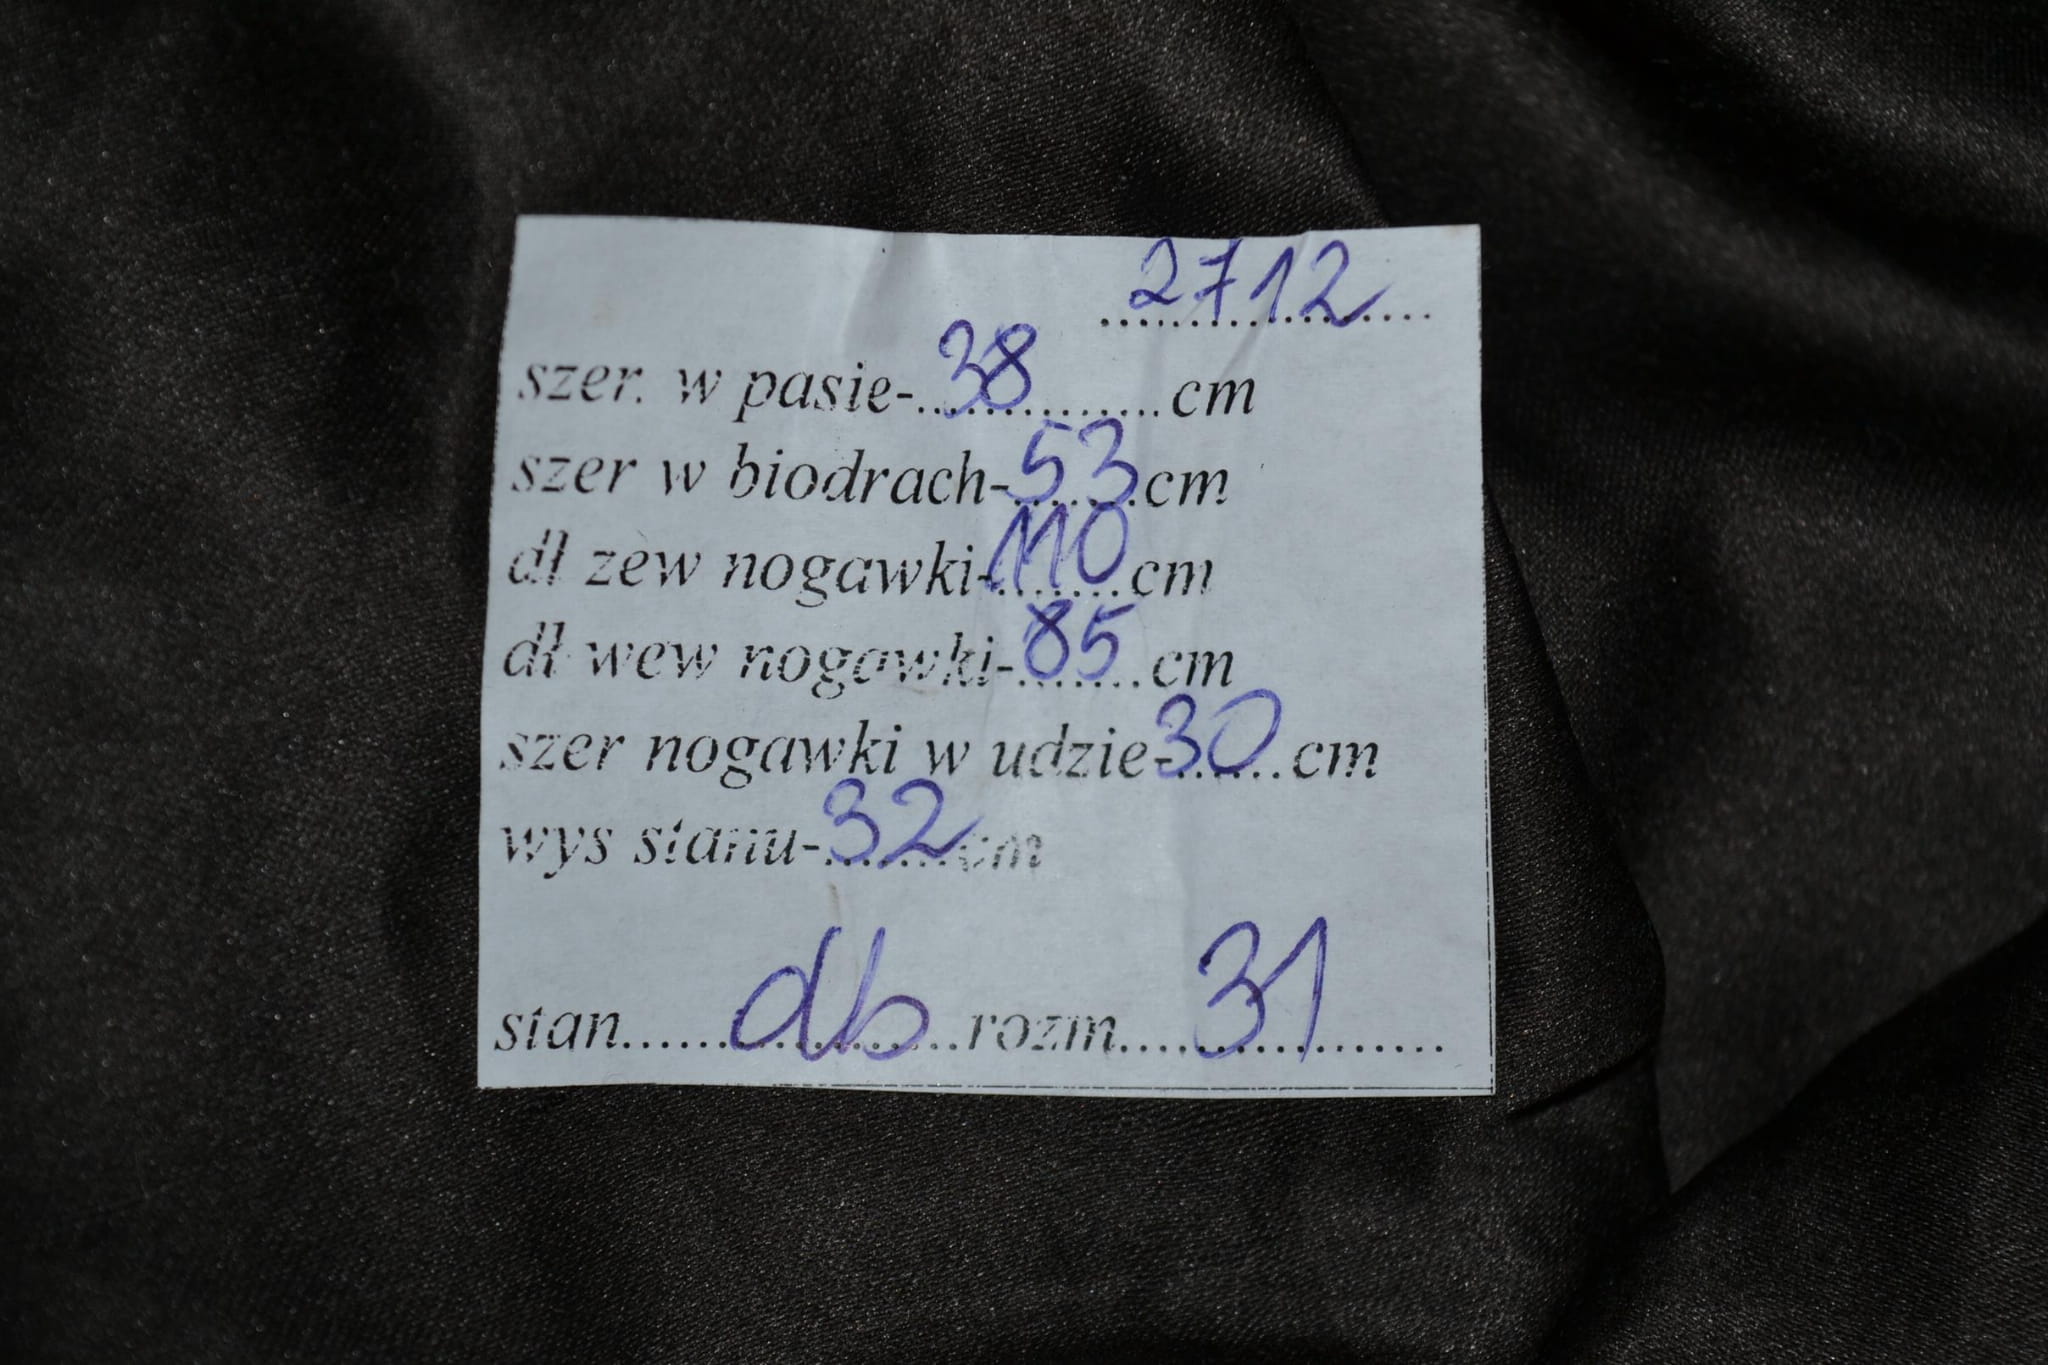 2712
szer. w pasie-38 cm
szer w biodrach-53 cm
dł zew nogawki-110 cm
dł wew nogawki-85 cm
szer nogawki w udzie-30 cm
wys stanu-32 cm
stan......db......rozm......31......